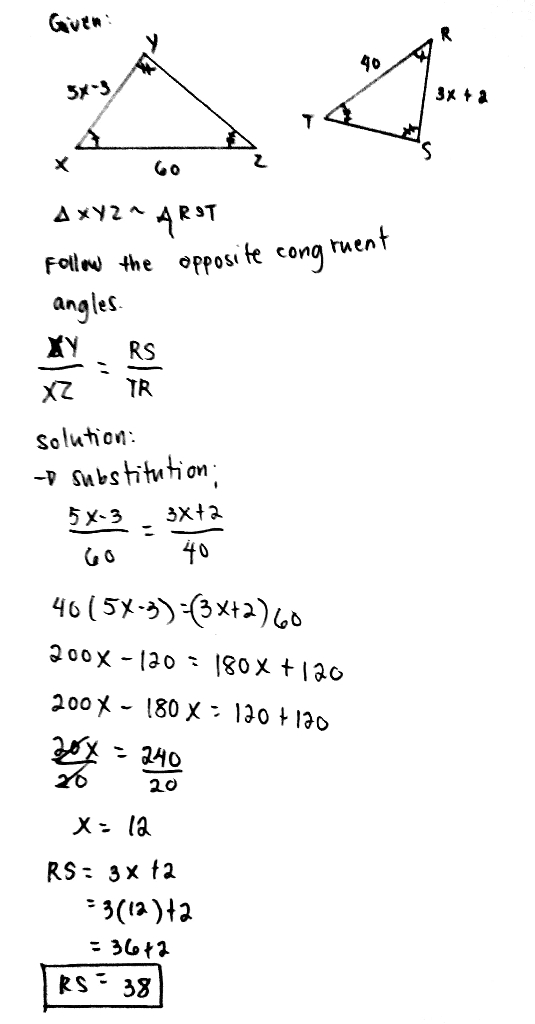 Given:
Y
5x-3
X
60
Z
R
40
3x + 2
T
S
Δ XYZ ~ Δ RST
Follow the opposite congruent
angles.
XY = RS
XZ TR
solution:
→ substitution;
5x-3 = 3x+2
60 40
40(5x-3)=(3x+2)60
200x - 120 = 180x + 120
200x - 180x = 120 + 120
20x = 240
20 20
x = 12
RS = 3x +2
= 3(12)+2
= 36+2
RS = 38